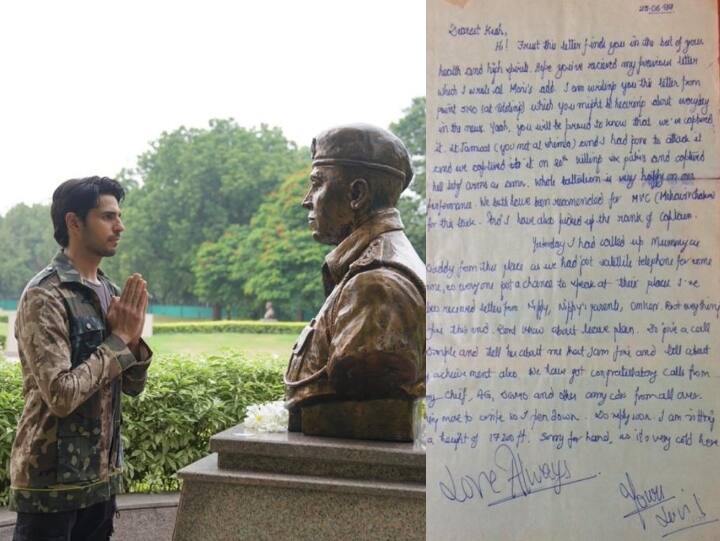 23-06-99
Dearest Kush,
Hi! Trust this letter finds you in the best of your
health and high spirits. Hope you've recieved my previous letter
which I wrote at Moni's add. I am writing you this letter from
point 5140 (at tololing) which you might be hearing about everyday
in the news. Yeah, you will be proud to know that we've captured
it. Lt Jamwal (you met at shimla) and I had gone to attack it
and we captured it on 20th killing six pakis and captured
hell lot of arms as ammo. Whole battalion is very happy on our
performance. We both have been recomended for MVC (Mahavir Chakra)
for this task. And I have also picked up the rank of Captain.
Yesterday I had called up Mummy as
Daddy from this place as we had got satellite telephone for some
time, so everyone got a chance to speak at their place. I've
been received letters from
this end. Dont know about leave plan. Do give a call
Dimple and tell her about me that I am fine and tell about
achievement also. We have got congratulatory calls from
Chief, and other army cdrs from all over.
more to write so I pen down. Do reply soon. I am sitting
a height of 17200 ft. Sorry for hand, as it's very cold here
Love Always
Yours
Luv